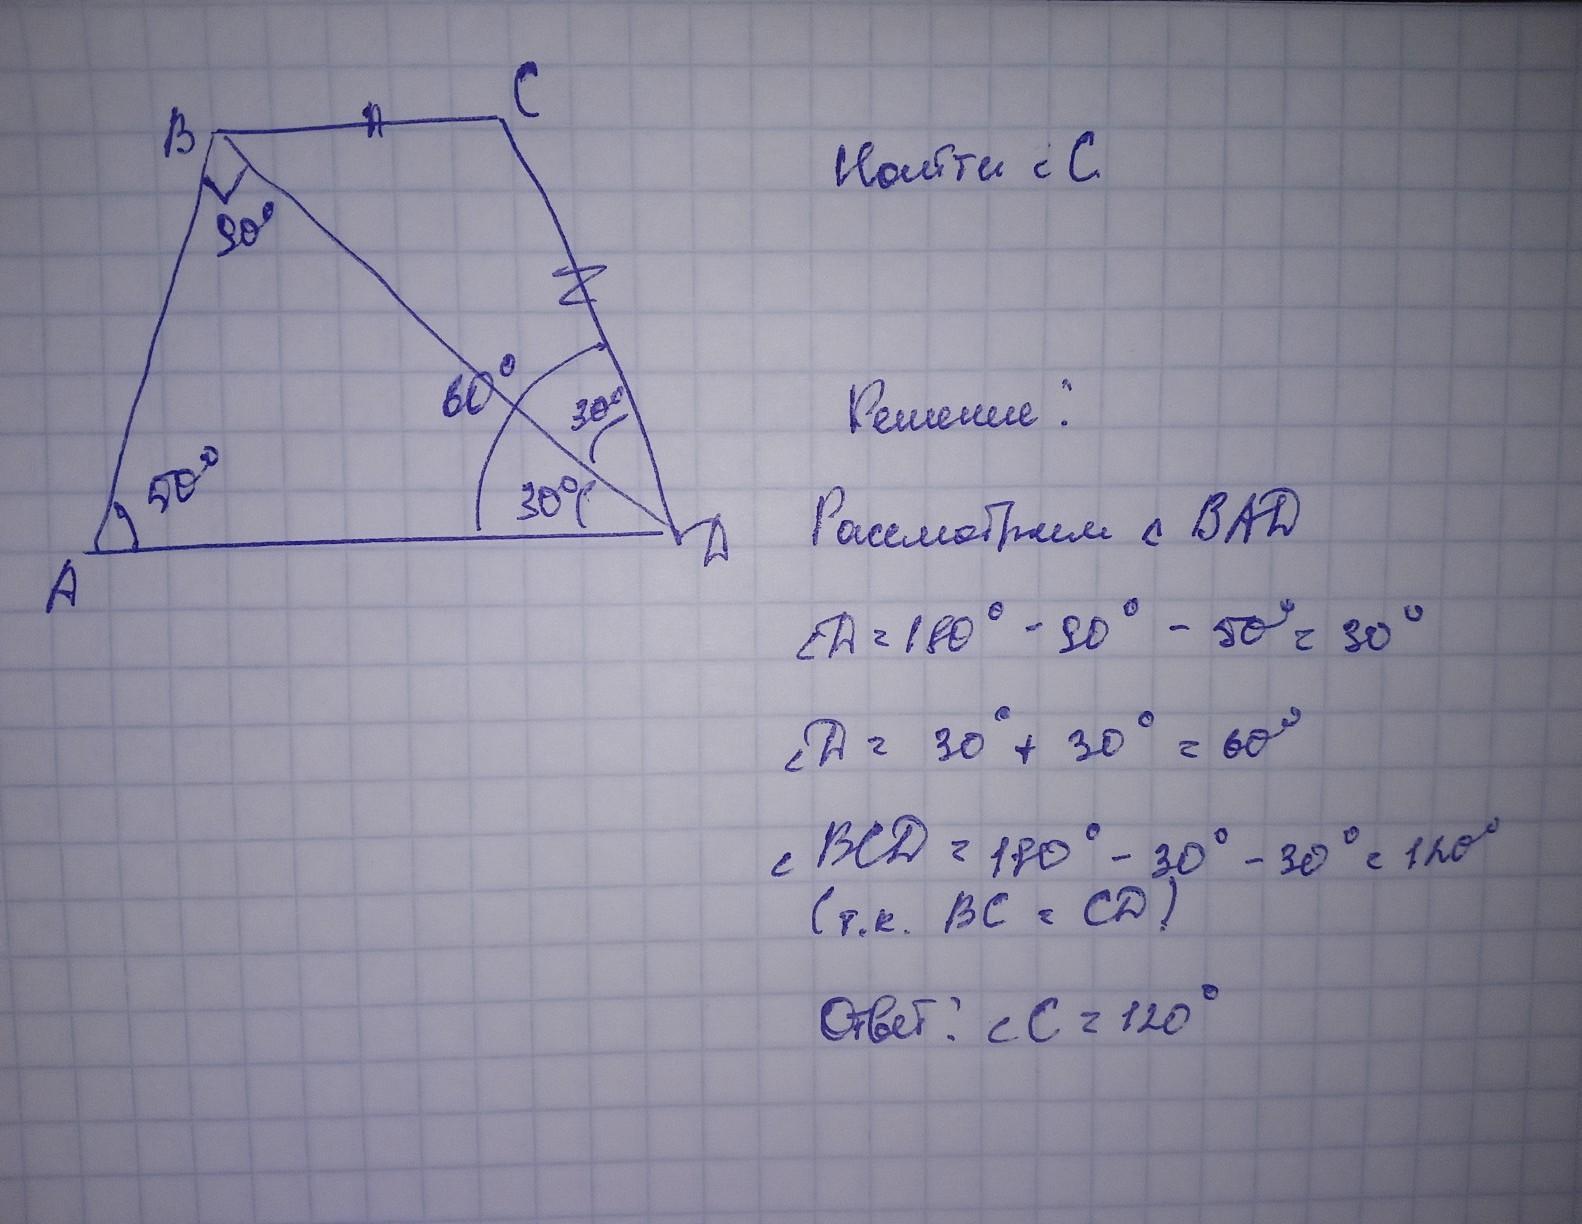 B
C
90°
60°
30°
50°
30°
A
D
Найти ∠C
Решение:
Рассмотрим ∠ BAD
∠D = 180° - 90° - 50° = 30°
∠D = 30° + 30° = 60°
∠ BCD = 180° - 30° - 30° = 120°
(т.к. BC = CD)
Ответ: ∠C = 120°